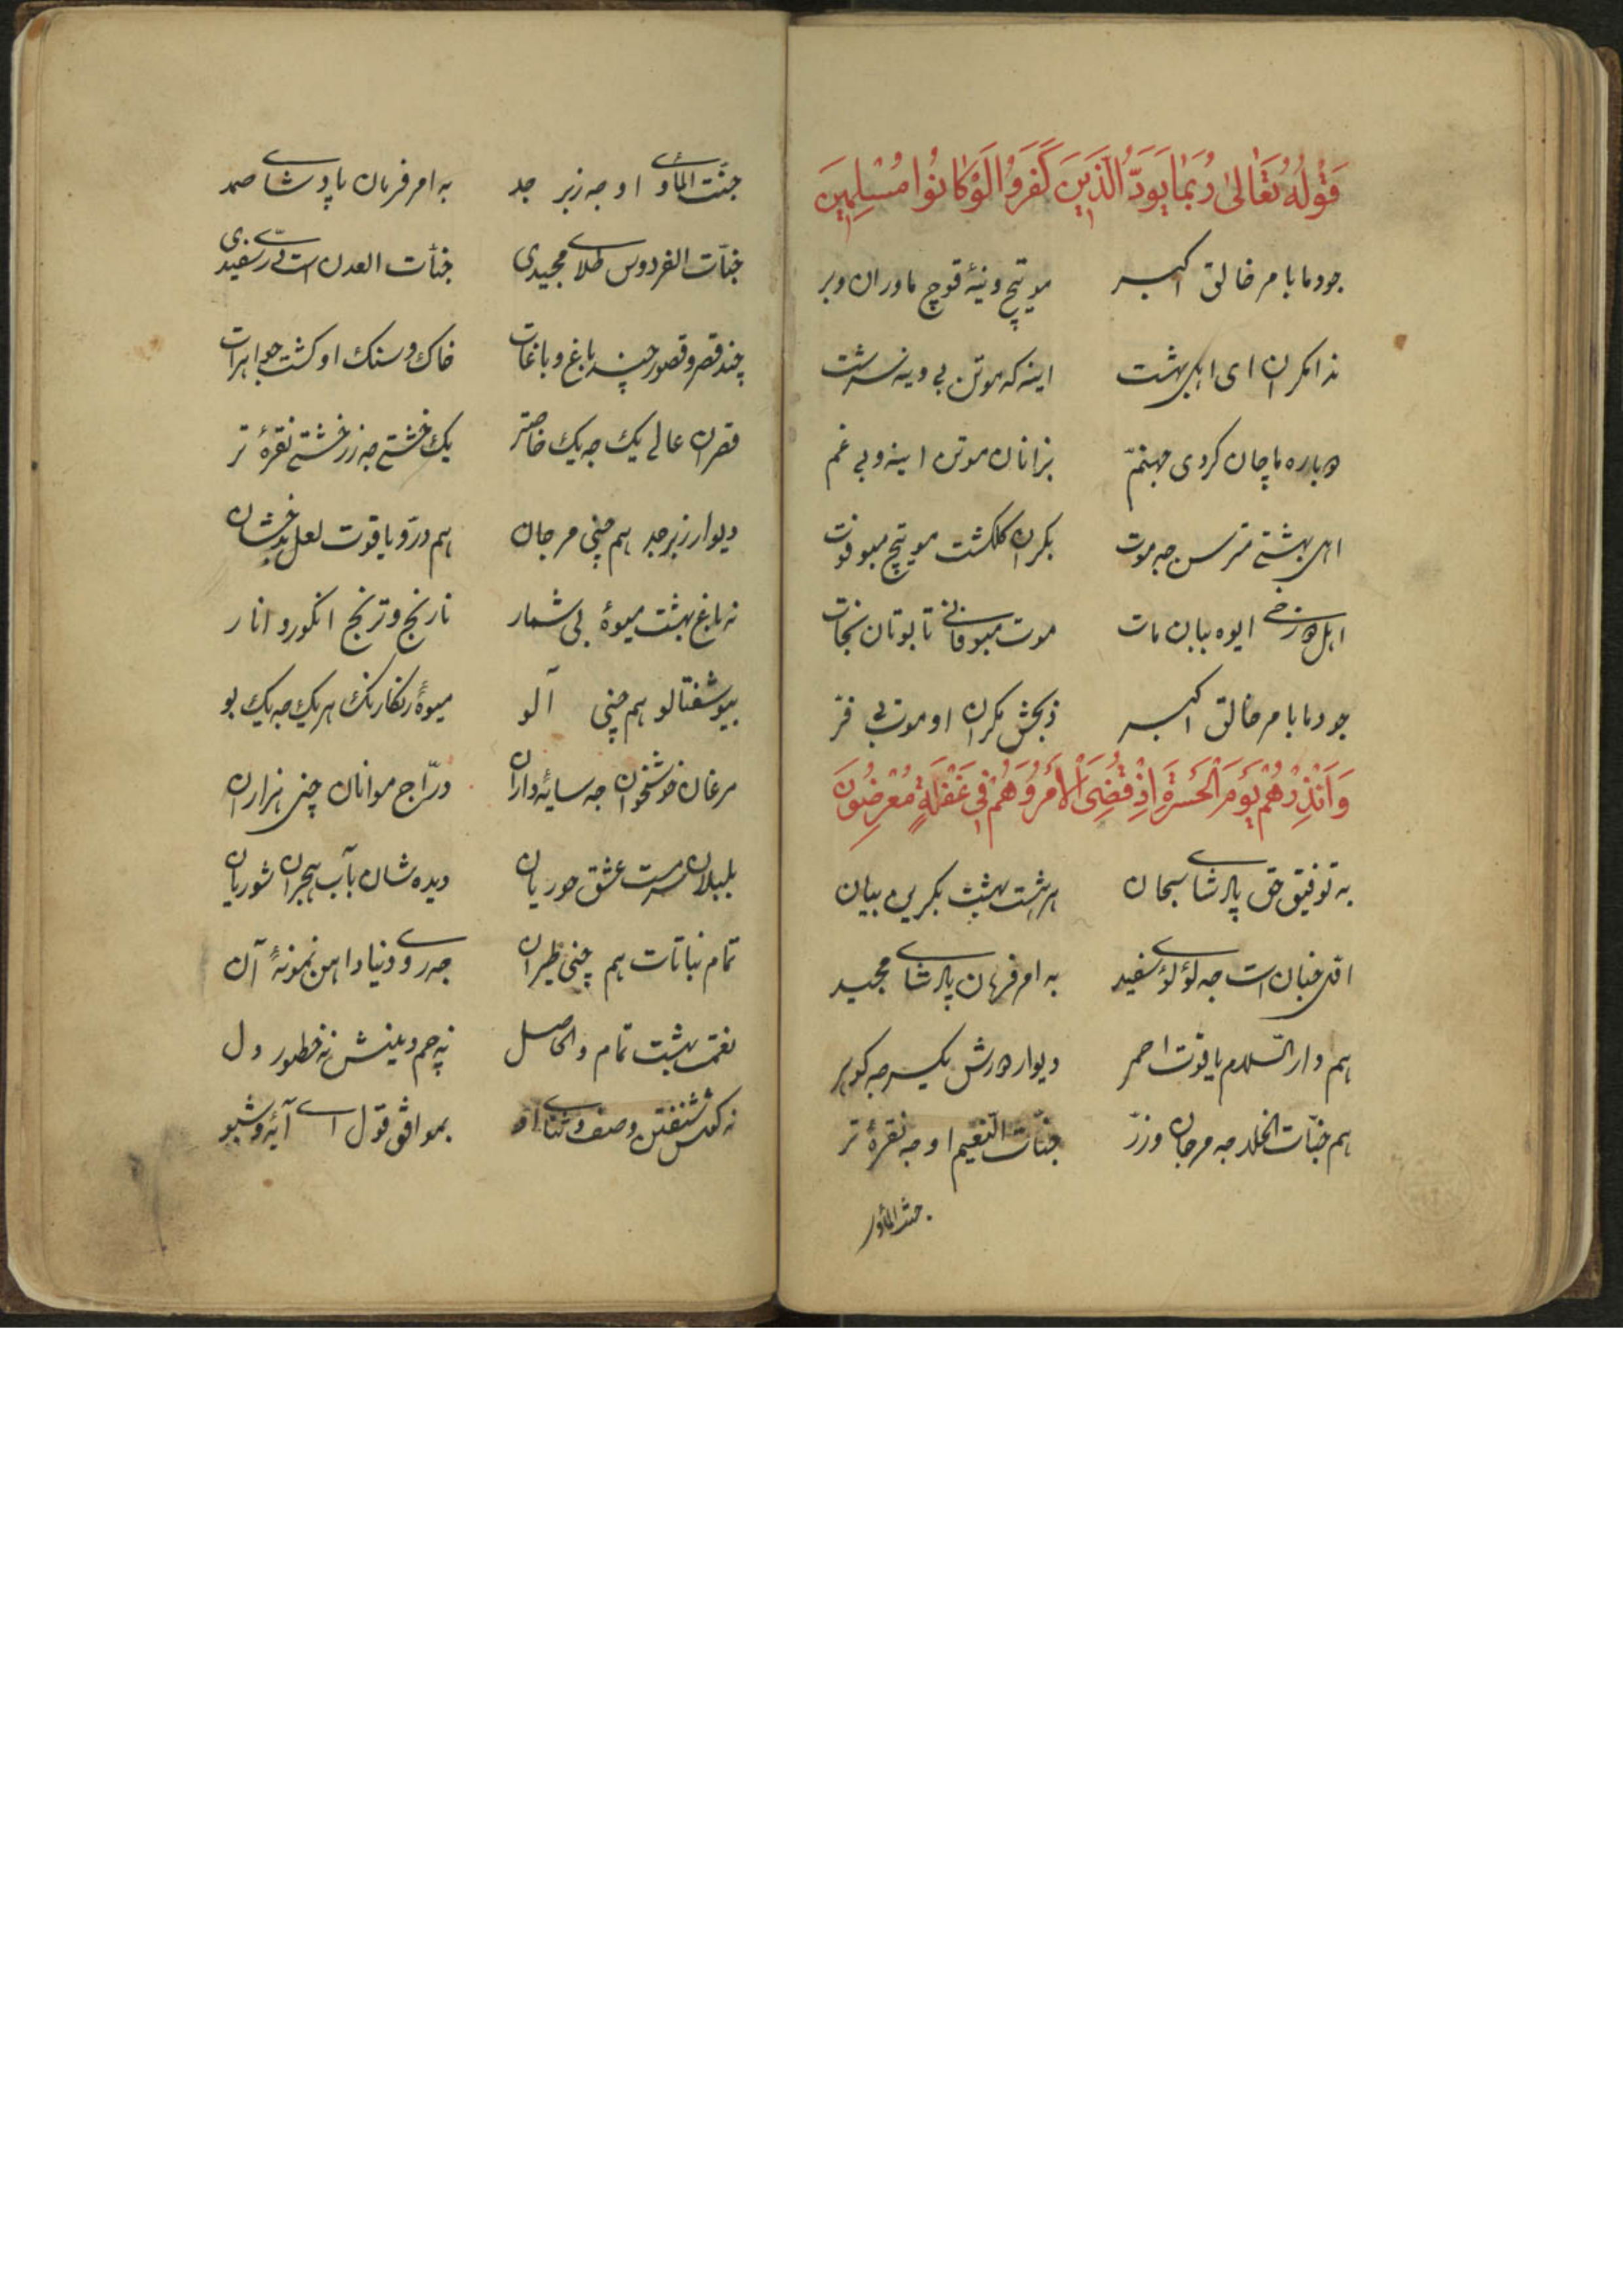 قَوْلُهُ تَعَالىٰ رُبَمَا يَوَدُّ الَّذَيِنَ كَفَرَوُا لَوْ كَانُوا مُسْلِمِينَ
جودما بامر خالق اکبر موتیچ وینهٔ قوچ ماوران وبر
ندا مکران ای اهل بهشت اینه که موتن بی وینه سرشت
دباره ماچان کروی جهنم بزانان موتن اینه و بی غم
اهل بهشتے مترسن جه موت بکران گلگشت مویتیچ میو فوت
اهل دوزخے ایوه ببان مات موت میو فانے تا بوتان نجات
جودما بامر خالق اکبر ذبحش مکران او موت بی فر
وَاَنْذِرْهُمْ يَوْمَ الْحَسْرَةِ اِذْ قُضِىَ الْأَمْرُ وَهُمْ فِى غَفْلَةٍ مُعْرِضُونَ
به توفیق حق پادشای سبحان هر هشت بهشت بکرین بیان
اول جنان است جه لؤلؤی سفید به امر فرمان پادشای مجید
هم دار السّلام یاقوت احمر دیوار درش یکسر جه گوهر
هم جنّات الخلد جه مرجان وزرّ جنّات النّعیم او جه نقرهٔ تر
جنت المأوی
جنّت المأوی او جه زبر جد به امر فرمان پادشای صمد
جنّات الفردوس طلای مجیدی جنّات العدن است درّی سفیدی
چند قصر و قصور چند باغ و باغات خاک و سنگ او گشت جواهرات
قصران عالی یک جه یک خاصتر یک خشتے جه زر خشتے نقرهٔ تر
دیوار زبرجد هم چنی مرجان هم درّ و یاقوت لعل بدخشان
نه باغ بهشت میوهٔ بی شمار نارنج و ترنج انگور و انار
بیو شفتالو هم چنی آلو میوهٔ رنگارنگ هر یک جه یک بو
مرغان خوشخوان جه سایهٔ داران درّاج موانان چنی هزاران
بلبلان سرمست عشق حوریان دیده شان بآب هجران شوریان
تمام نباتات هم چنی طیران جه روی دنیا داهن نمونهٔ آن
نعمت بهشت تمام والحاصل نه چم وینیش نه خطور دل
نه کس شنفتن وصف و ثنای او بموافق قول ای آیهٔ وشبو